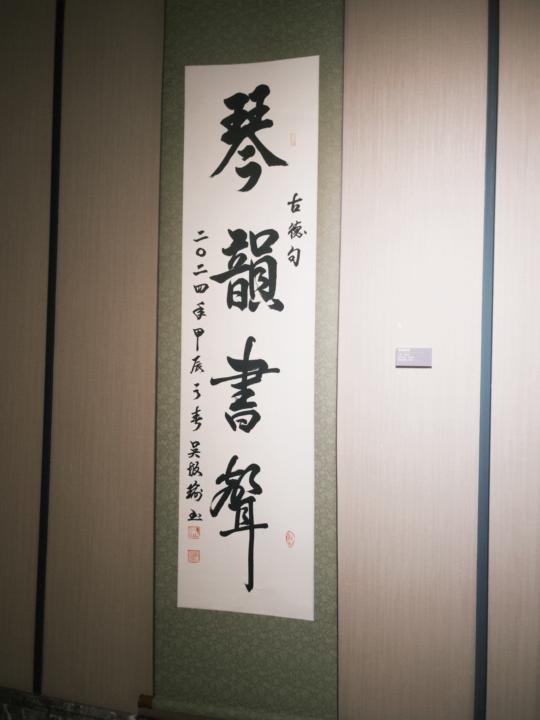 琴韻書聲
古德句
二〇二四年甲辰之春吳 書